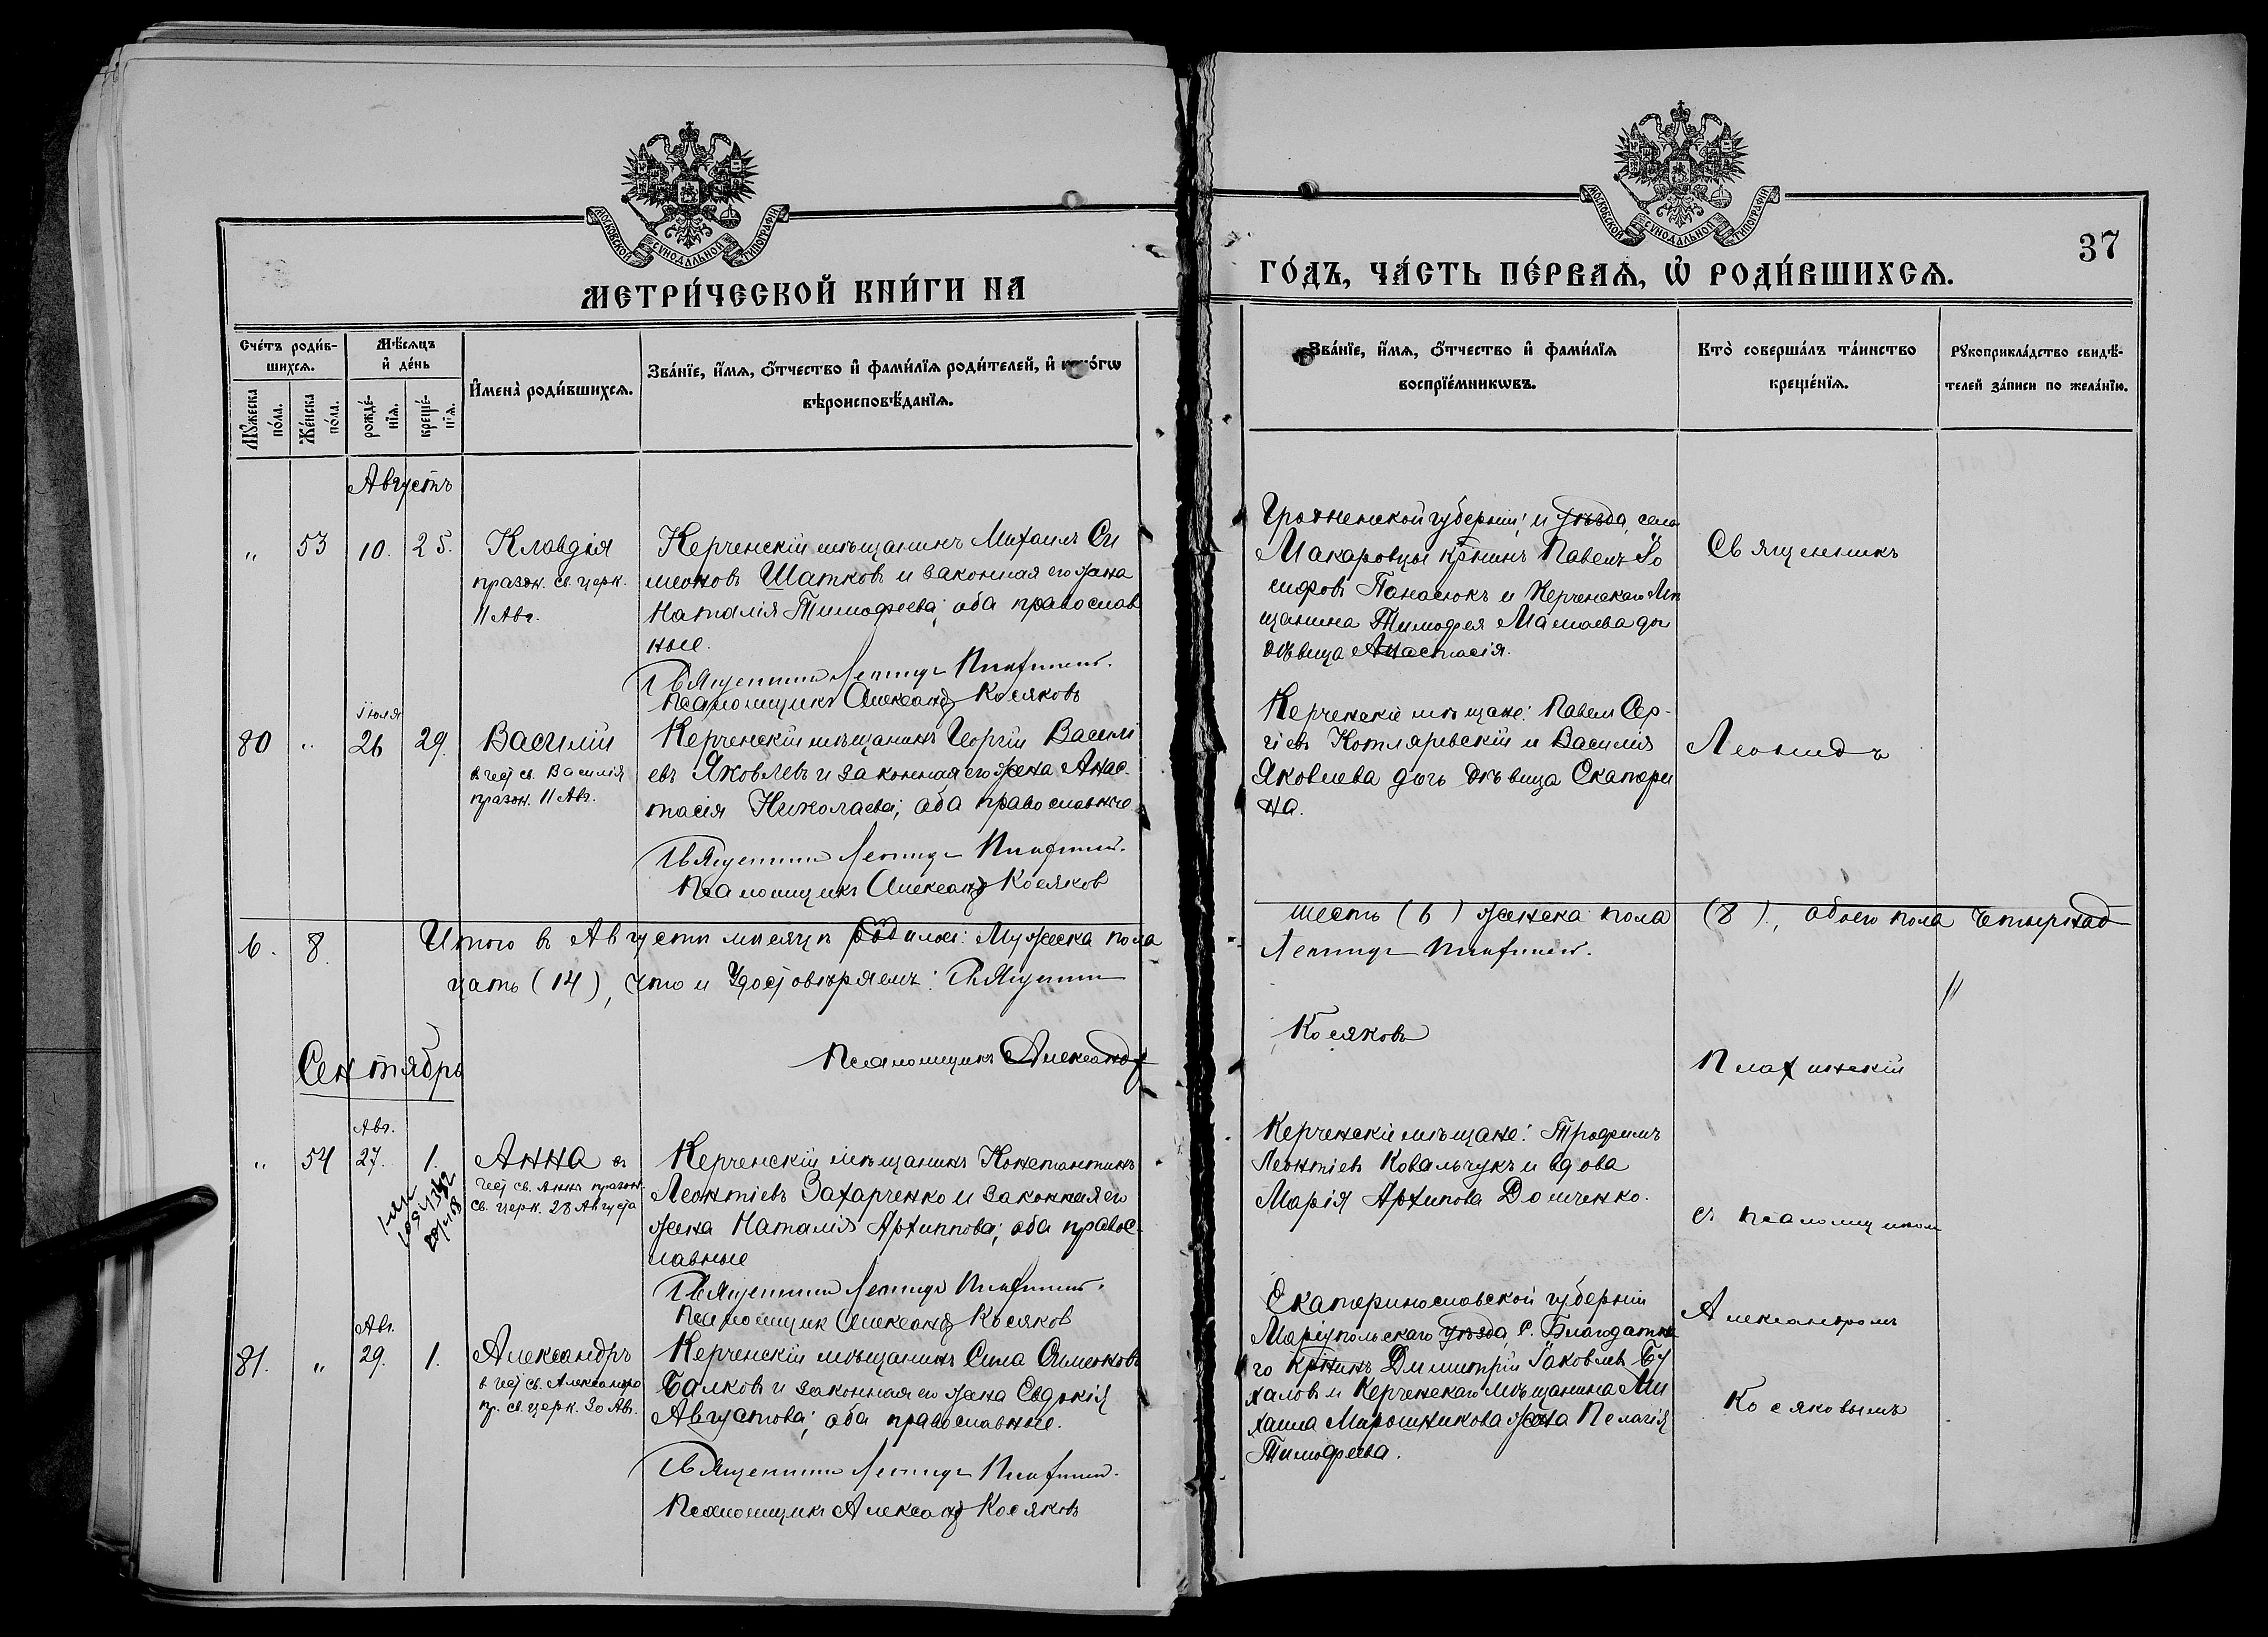 МОСКОВСКОЙ СУНОДАЛЬНОЙ ТИПОГРАФІИ
МЕТРИ́ЧЕСКОЙ КНИ́ГИ НА
Сче́тъ роди́в-
шихсѧ.
Мꙋ́жеска по́ла.
Же́нска по́ла.
Мѣ́сѧцъ
и҆ де́нь
рожде́-
нїѧ.
креще́-
нїѧ.
И҆мена̀ роди́вшихсѧ.
Зва́нїе, и҆́мѧ, ѻ҆́тчество и҆ фами́лїѧ роди́телей, и҆ како́гѡ
вѣроисповѣ́данїѧ.
Августъ
" 53 10. 25. Клавдія
праздн. св. церк.
11 Авг.
Керченскій мѣщанинъ Михаилъ Си
меоновъ Шатковъ и законная его жена
Наталія Тимофеева; оба православ
ные.
Священникъ Леонидъ Плахинскій.
Псаломщикъ Александръ Косяковъ
Іюля
80 " 26 29. Василій
в честь св. Василія
праздн. 11 Авг.
Керченскій мѣщанинъ Георгій Васили
евъ Яковлевъ и законная его жена Анас-
тасія Николаева; оба православные
Священникъ Леонидъ Плахинскій.
Псаломщикъ Александръ Косяков
6. 8. Итого в Августѣ мѣсяцѣ родилось: Мужеска пола
цать (14), Что и Удостовѣряемъ: Священникъ
Псаломщикъ Александръ
Сентябрь
Авг.
" 54 27. 1. Анна въ
честь св. Анны праздн.
св. церк. 28 Августа
Керченскій мѣщанинъ Константинъ
Леонтіевъ Захарченко и законная его
жена Наталія Архиппова; оба правос-
лавные
Священникъ Леонидъ Плахинскій.
Псаломщик Александръ Косяков
Авг.
81. " 29. 1. Александръ
в честь св. Александра
пр. св. церк. 30 Авг.
Керченскій мѣщанинъ Сила Симеоновъ
Балковъ и законная его жена Евдокія
Августова; оба православные.
Священникъ Леонидъ Плахинскій.
Псаломщикъ Александръ Косяковъ
МОСКОВСКОЙ СУНОДАЛЬНОЙ ТИПОГРАФІИ
37
ГО́ДЪ, ЧА́СТЬ ПЕ́РВАѦ, Ѡ҆ РОДИ́ВШИХСѦ.
Зва́нїе, и҆́мѧ, ѻ҆́тчество и҆ фами́лїѧ
воспрїе́мникѡвъ.
Кто̀ соверша́лъ та́инство
креще́нїѧ.
Рꙋкоприкла́дство свидѣ́-
телей за́писи по жела́нїю.
Гродненской губерніи и уѣзда, села
Макаровцы кр̃нинъ Павелъ Іо
сифовъ Панасюкъ и Керченскаго Мѣ
щанина Тимофея Мамаева дочь
дѣвица Анастасія.
Керченскіе мѣщане: Павелъ Сер-
гіевъ Котляревскій и Василія
Яковлева дочь дѣвица Екатери
на.
шесть (6) женска пола (8), обоего пола Четырнад
Леонидъ Плахинскій.
Косяковъ
Керченскіе мѣщане: Трофимъ
Леонтіевъ Ковальчукъ и вдова
Марія Архипова Домченко.
Екатеринославской губерніи
Маріупольскаго уѣзда, с. Благодатна
го кр̃нинъ Димитрій Іаковлевъ Бу
халовъ и Керченскаго мѣщанина Ми
хаила Мирошникова жена Пелагія
Тимофеева.
Священникъ
Леонидъ
Плахинскій
съ псаломщикомъ
Александромъ
Косяковымъ